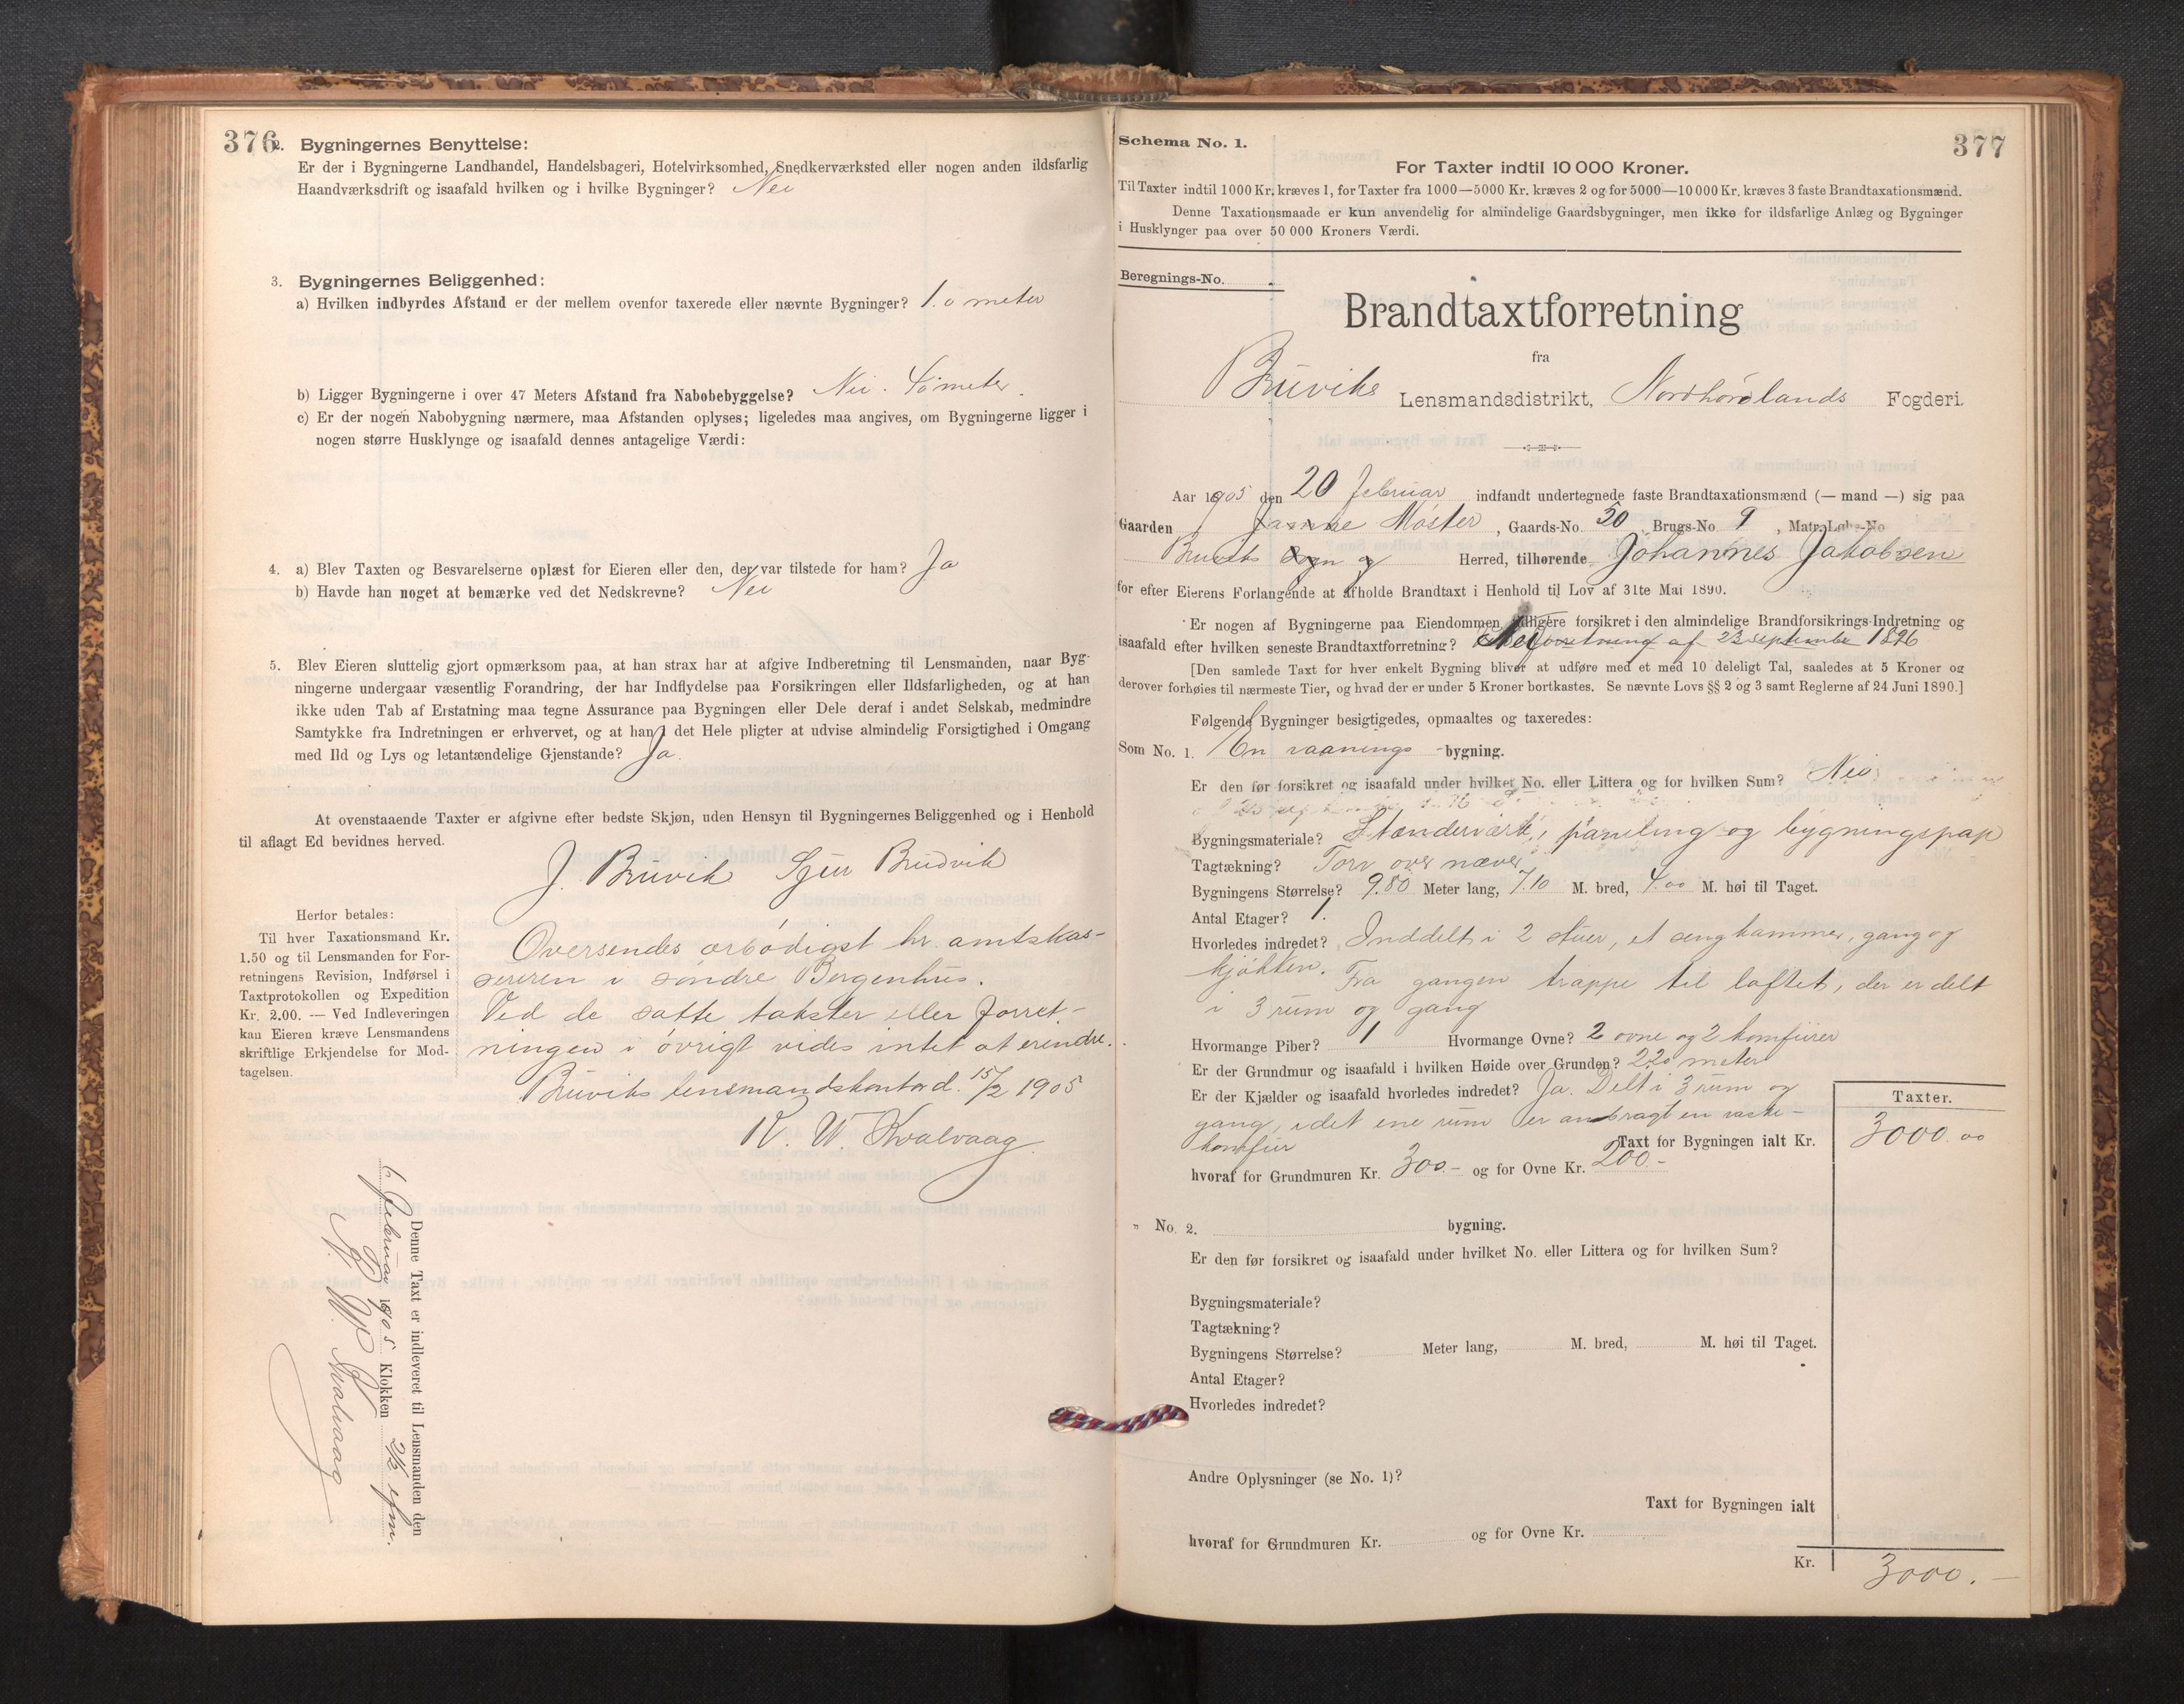 376
2. Bygningernes Benyttelse:
Er der i Bygningerne Landhandel, Handelsbageri, Hotelvirksomhed, Snedkerværksted eller nogen anden ildsfarlig
Haandværksdrift og isaafald hvilken og i hvilke Bygninger? Nei
3. Bygningernes Beliggenhed:
a) Hvilken indbyrdes Afstand er der mellem ovenfor taxerede eller nævnte Bygninger? 1.0 meter
b) Ligger Bygningerne i over 47 Meters Afstand fra Nabobebyggelse? Nei. 40 meter.
c) Er der nogen Nabobygning nærmere, maa Afstanden oplyses; ligeledes maa angives, om Bygningerne ligger i
nogen større Husklynge og isaafald dennes antagelige Værdi:
4. a) Blev Taxten og Besvarelserne oplæst for Eieren eller den, der var tilstede for ham? Ja
b) Havde han noget at bemærke ved det Nedskrevne? Nei
5. Blev Eieren sluttelig gjort opmærksom paa, at han strax har at afgive Indberetning til Lensmanden, naar Byg-
ningerne undergaar væsentlig Forandring, der har Indflydelse paa Forsikringen eller Ildsfarligheden, og at han
ikke uden Tab af Erstatning maa tegne Assurance paa Bygningen eller Dele deraf i andet Selskab, medmindre
Samtykke fra Indretningen er erhvervet, og at han i det Hele pligter at udvise almindelig Forsigtighed i Omgang
med Ild og Lys og letantændelige Gjenstande? Ja.
At ovenstaaende Taxter er afgivne efter bedste Skjøn, uden Hensyn til Bygningernes Beliggenhed og i Henhold
til aflagt Ed bevidnes herved.
J. Bruvik Sjur Brudvik
Herfor betales:
Til hver Taxationsmand Kr.
1.50 og til Lensmanden for For-
retningens Revision, Indførsel i
Taxtprotokollen og Expedition
Kr. 2.00. — Ved Indleveringen
kan Eieren kræve Lensmandens
skriftlige Erkjendelse for Mod-
tagelsen.
Oversendes ærbødigst hr. amtskas-
sereren i søndre Bergenhus.
Ved de satte takster eller forret-
ningen i øvrigt vides intet at erindre.
Bruviks lensmandskontor d. 15/2 1905
K. W. Kvalvaag
Denne Taxt er indleveret til Lensmanden den
Februar 1905 Klokken 2½ efm.
K. W. Kvalvaag
377
Schema No. 1.
For Taxter indtil 10 000 Kroner.
Til Taxter indtil 1000 Kr. kræves 1, for Taxter fra 1000—5000 Kr. kræves 2 og for 5000—10 000 Kr. kræves 3 faste Brandtaxationsmænd.
Denne Taxationsmaade er kun anvendelig for almindelige Gaardsbygninger, men ikke for ildsfarlige Anlæg og Bygninger
i Husklynger paa over 50 000 Kroners Værdi.
Beregnings-No.
Brandtaxtforretning
fra
Bruviks Lensmandsdistrikt, Nordhørdlands Fogderi.
Aar 1905 den 20 februar indfandt undertegnede faste Brandtaxationsmænd (— mand —) sig paa
Gaarden Møster, Gaards-No. 50, Brugs-No. 9, Matr. Løbe-No
Bruviks Sogn og Herred, tilhørende Johannes Jakobsen
for efter Eierens Forlangende at afholde Brandtaxt i Henhold til Lov af 31te Mai 1890.
Er nogen af Bygningerne paa Eiendommen tidligere forsikret i den almindelige Brandforsikrings-Indretning og
isaafald efter hvilken seneste Brandtaxtforretning? Nei forretning af 23 september 1896
[Den samlede Taxt for hver enkelt Bygning bliver at udføre med et med 10 deleligt Tal, saaledes at 5 Kroner og
derover forhøies til nærmeste Tier, og hvad der er under 5 Kroner bortkastes. Se nævnte Lovs §§ 2 og 3 samt Reglerne af 24 Juni 1890.]
Følgende Bygninger besigtigedes, opmaaltes og taxeredes:
Som No. 1. En vaanings-bygning.
Er den før forsikret og isaafald under hvilket No. eller Littera og for hvilken Sum? Nei
Bygningsmateriale? Stænderværk, paneling og bygningspap
Tagtækning? Torv over næver
Bygningens Størrelse? 9.80 Meter lang, 7.10 M. bred, 4.00 M. høi til Taget.
Antal Etager? 1.
Hvorledes indredet? Inddelt i 2 stuer, et sengkammer, gang og
kjøkken. Fra gangen trappe til loftet, der er delt
i 3 rum og gang
Hvormange Piber? 1 Hvormange Ovne? 2 ovne og 2 komfurer
Er der Grundmur og isaafald i hvilken Høide over Grunden? 2.20 meter
Er der Kjælder og isaafald hvorledes indredet? Ja. Delt i 3 rum og
gang, i det ene rum er anbragt en vaske-
komfur
Taxt for Bygningen ialt Kr.
Taxter.
3000.00
hvoraf for Grundmuren Kr. 300.- og for Ovne Kr. 200.-
" No. 2. bygning.
Er den før forsikret og isaafald under hvilket No. eller Littera og for hvilken Sum?
Bygningsmateriale?
Tagtækning?
Bygningens Størrelse? Meter lang, M. bred, M. høi til Taget.
Antal Etager?
Hvorledes indredet?
Andre Oplysninger (se No. 1)?
Taxt for Bygningen ialt
hvoraf for Grundmuren Kr. og for Ovne Kr.
Kr. 3000.—